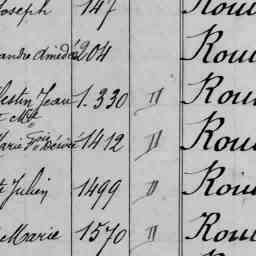 Joseph 147 Rou
andre Amédée 204 Rou
lestin Jean 1.330 " Rou
Marie Fois Désiré 1412 " Rou
Julien 1499 " Rou
Marie 1570 " Rou